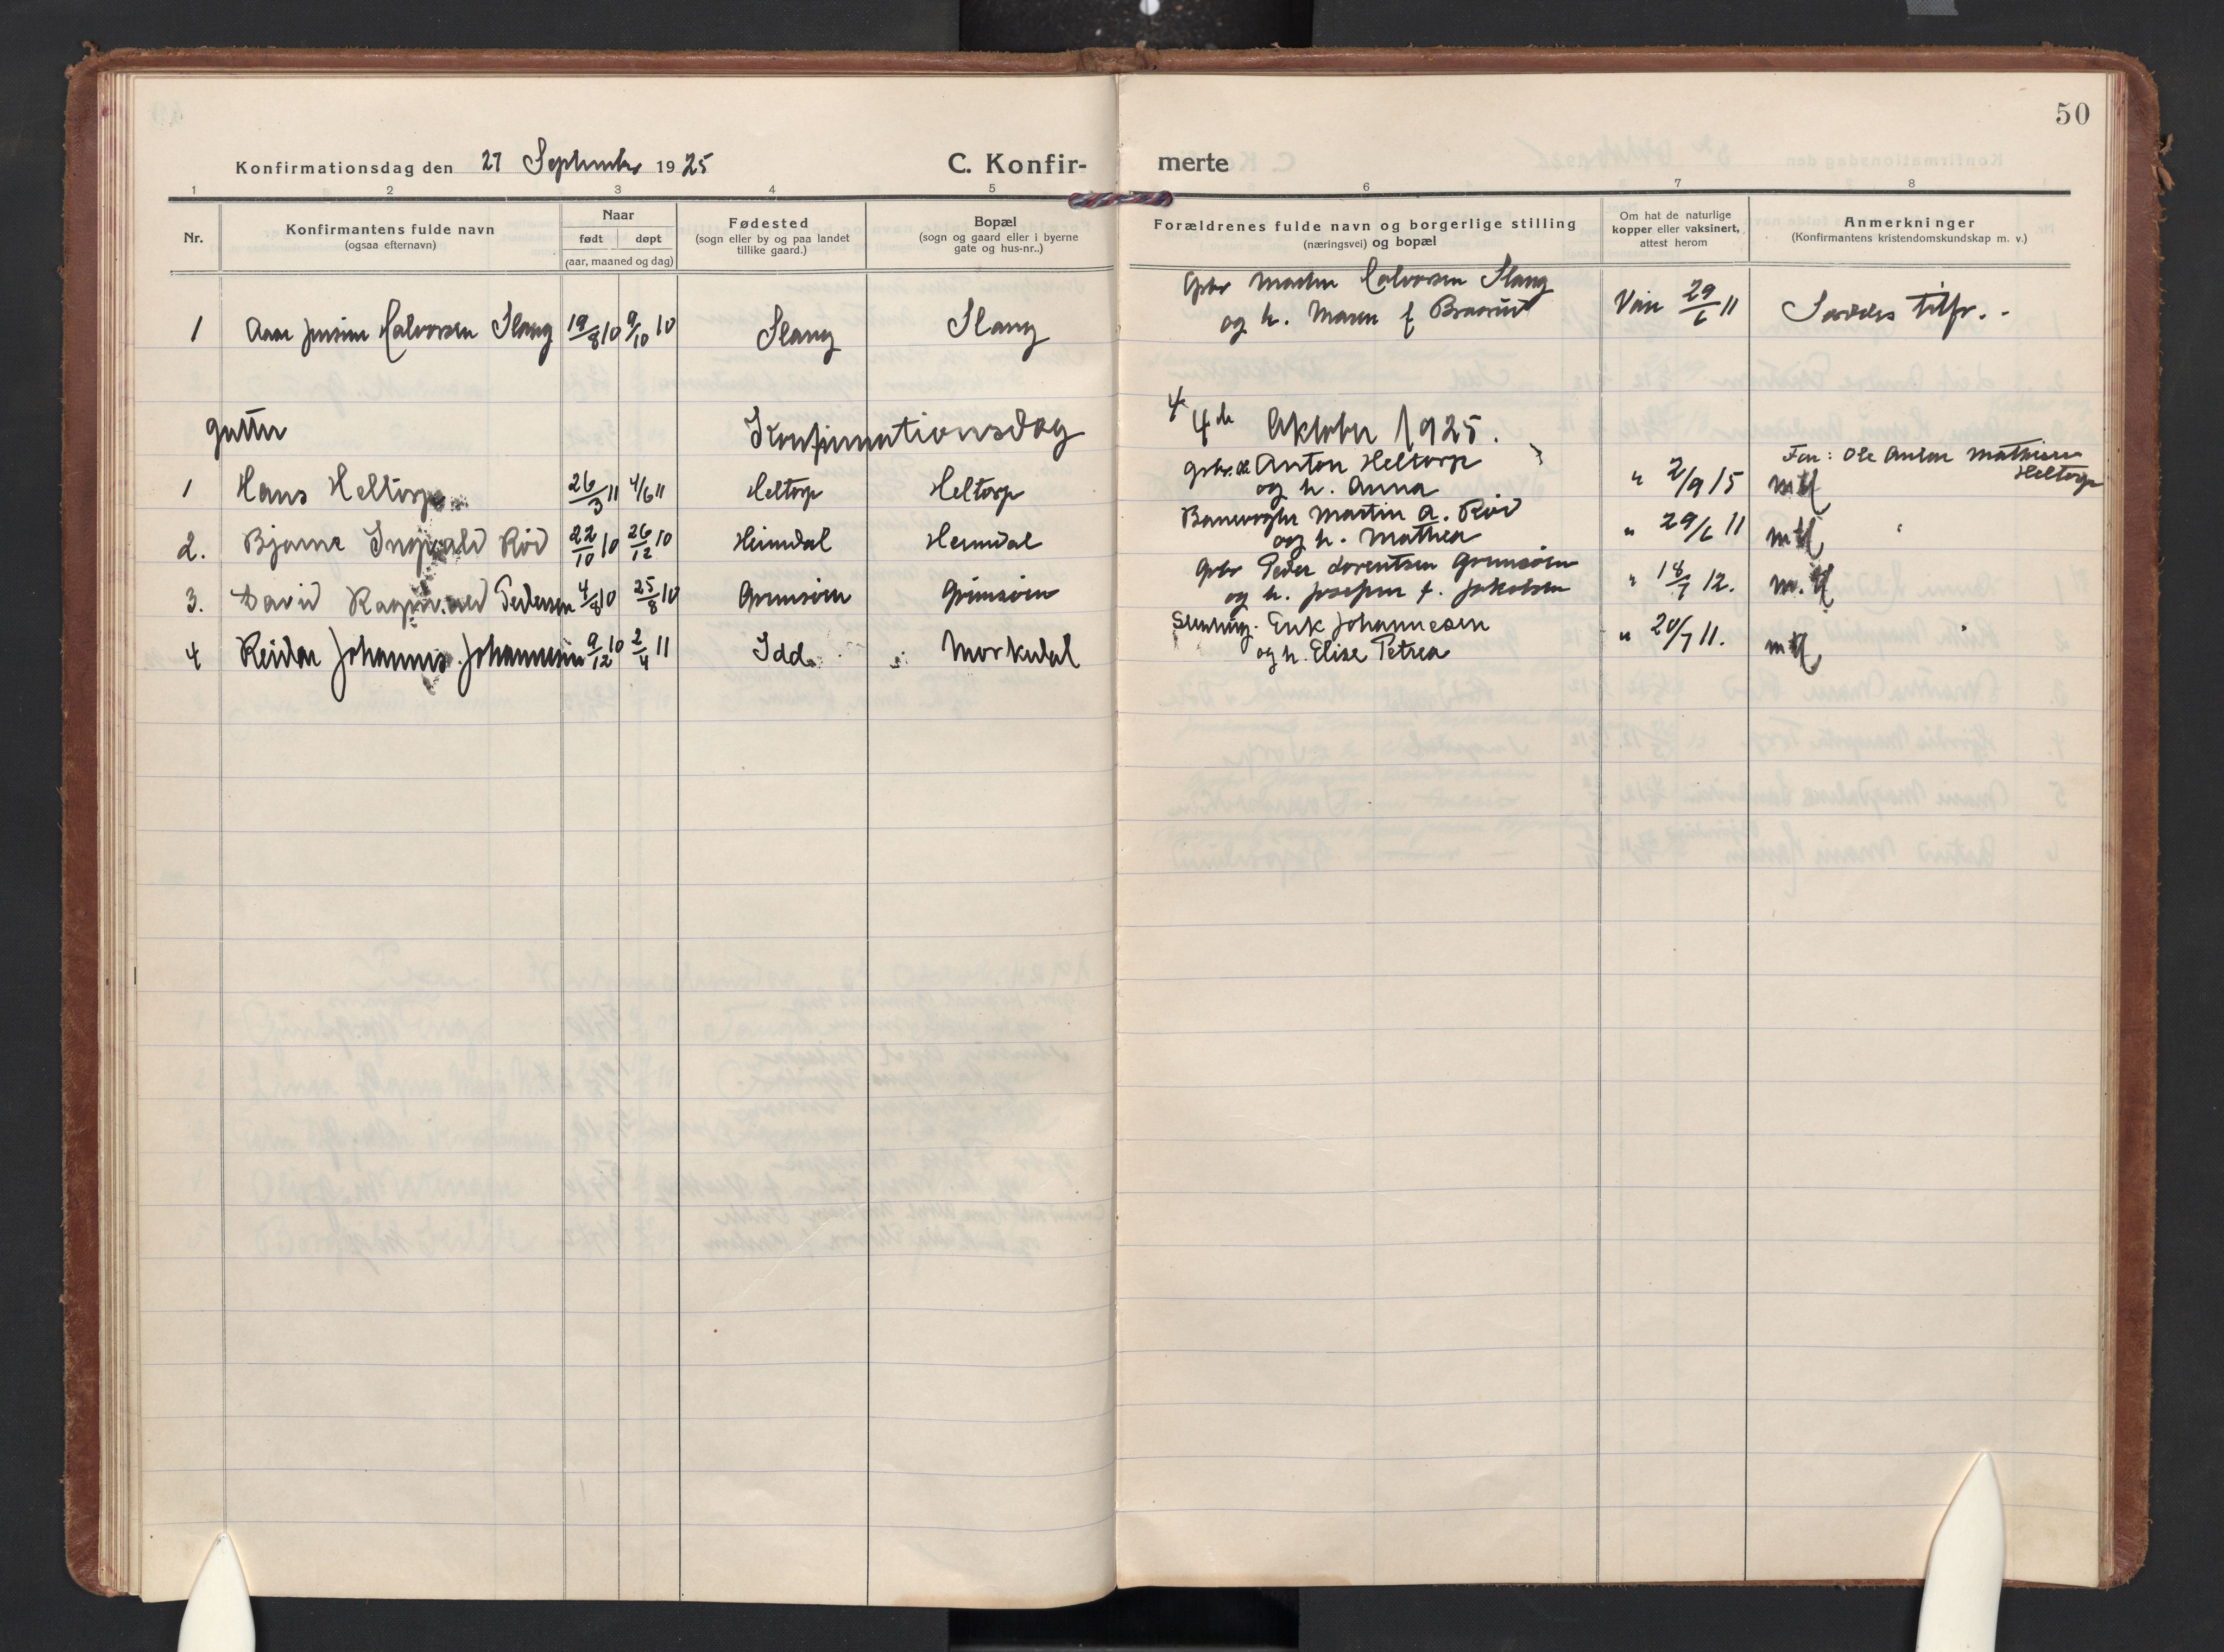 50
Konfirmationsdag den 27 September 1925
C. Konfir-
merte
1 2 3 4 5 6 7 8
Nr.
Konfirmantens fulde navn
(ogsaa efternavn)
Naar
født døpt
(aar, maaned og dag)
Fødested
(sogn eller by og paa landet
tillike gaard.)
Bopæl
(sogn og gaard eller i byerne
gate og hus-nr..)
Forældrenes fulde navn og borgerlige stilling
(næringsvei) og bopæl
Om hat de naturlige
kopper eller vaksinert,
attest herom
Anmerkninger
(Konfirmantens kristendomskundskap m. v.)
Gbr Martin Halvorsen Slang
1 Halvorsen Slang 19/8 10 9/10 10 Slang Slang og h. Maren f Braarud 29/6 11 tilfr.
gutter Konfirmationsdag 4de Oktober 1925.
Far: Ole Anton Mathisen
Heltorp
gbr. Ole Anton Heltorp
1 Hans Heltorp 26/3 11 4/6 11 Heltorp Heltorp og h. Anna " 2/9 15 mtf
Banevogter Martin A. Rød
2. Bjarne Ingvald Rød 22/10 10 26/12 10 Heimdal Heimdal og h. Mathea " 29/6 11 mtf "
Gbr Peder Lorentsen Grimsøen
3. David Ragnvald Pedersen 4/8 10 25/8 10 Grimsøen Grimsøen og h. Josefine f. Jakobsen " 18/7 12. m.tf
Erik Johannesen
4 Reidar Johannes Johannesen 9/12 10 2/4 11 Idd Morkedal og h. Elise Petrea " 20/7 11. mtf "